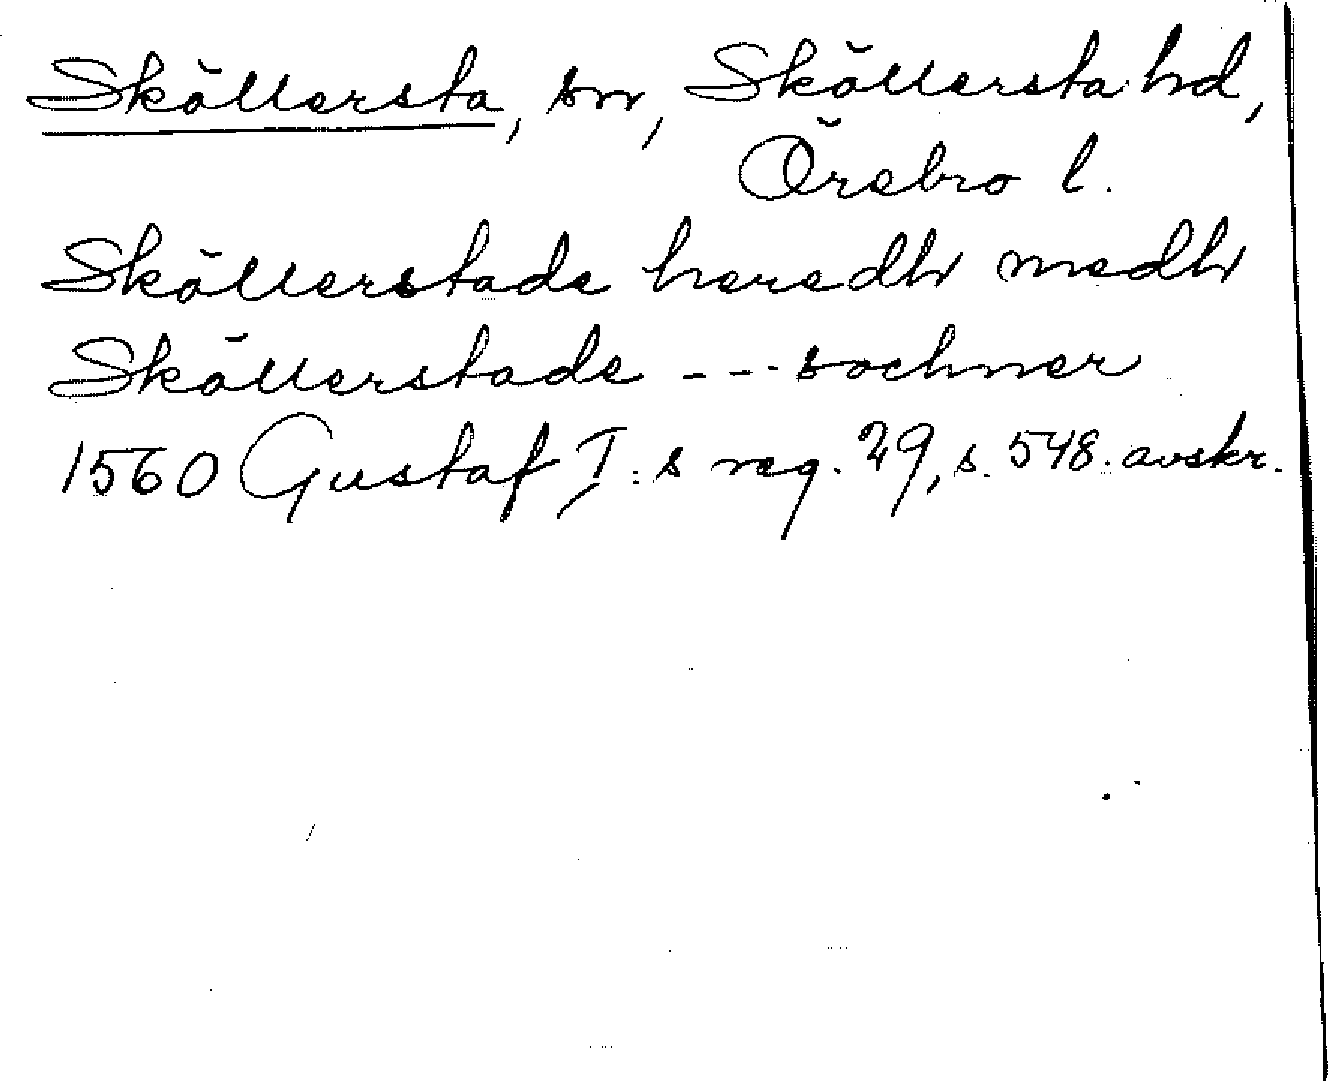 Sköllersta, sn, Sköllersta hd,
Örebro l.
Sköllerstade heredh medh
Sköllerstade --- sochner
1560 Gustaf I:s reg. 29, s. 548. avskr.